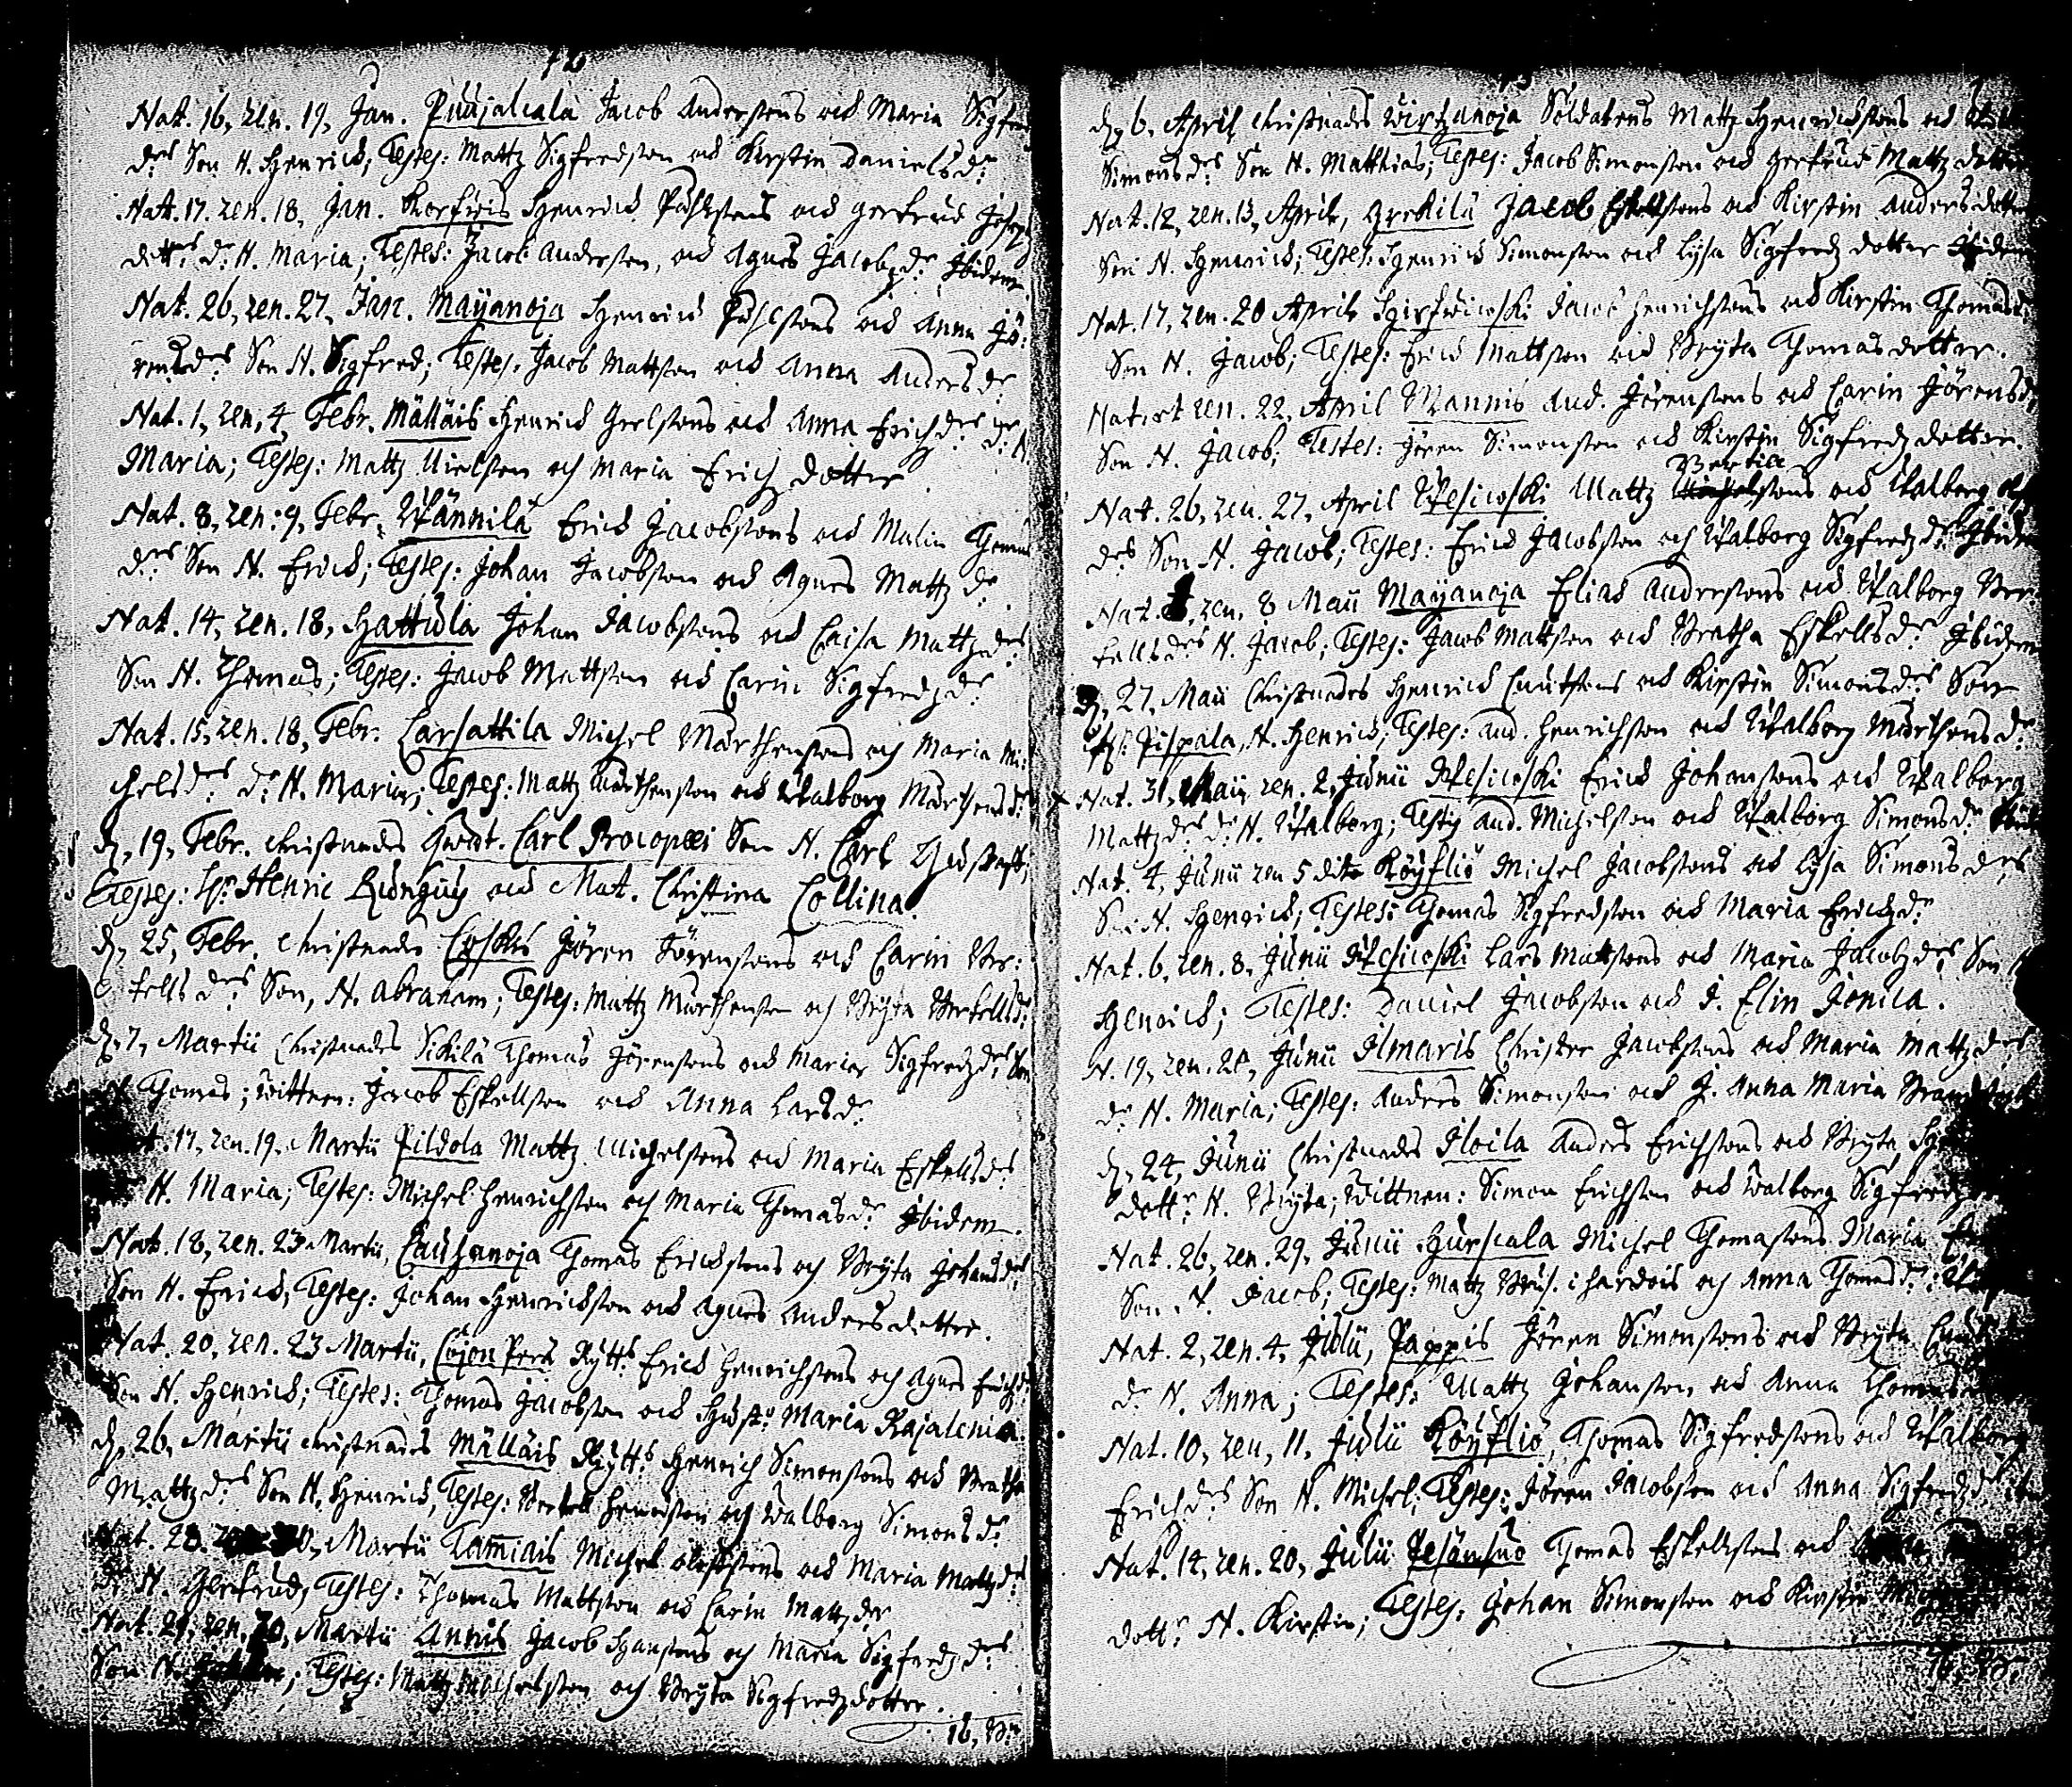 Nat. 16, ren. 19, Jan. Puujalcala Jacob Anderssons och Maria Sigfredz
drs Son N. Henrick; Testes: Mattz Sigfredsson och Kirstin Danielsdr
Nat. 17. ren. 18, Jan. Korfwis Henrick Påhlssons och Gertrud Josephz
dottrs dr N. Maria; Testes: Jacob Andersson, och Agnes Jacobzdr Ibidem.
Nat. 26, ren. 27, Jan. Mayanoja Henrick Påhlssons och Anna Jö:
rensdrs Son N. Sigfred; Testes: Jacob Mattsson och Anna Andersdr
Nat. 1, ren. 4, Febr. Mälläis Henrick Grelssons och Anna Erichdrs dr N.
Maria; Testes: Mattz Nielsson och Maria Erichz dotter
Nat. 8, ren: 9, Febr. Wännilä Erick Jacobssons och Malin Thomas
drs Son N. Erick; Testes: Johan Jacobsson och Agnes Mattz dr
Nat. 14, ren. 18, Hattula Johan Jacobssons och Caisa Mattzdrs
Son N. Thomas; Testes: Jacob Mattsson och Carin Sigfredzdr
Nat. 15, ren. 18, Febr. Carsattila Michel Mårthenssons och Maria Mi:
chelsdrs dr N. Maria; Testes: Mattz Mårthensson och Walborg Mårthensdr
d. 19, Febr. Christnades Qwat. Carl Procopæi Son N. Carl Gustaff;
Testes: Hr Henric Rungius och Mat. Christina Collina.
d. 25, Febr. Christnades Cuskis Jören Jörenssons och Carin Ber:
tells drs Son, N. Abraham; Testes: Mattz Mårthensson och Bryta Bertellsdr
d. 7, Martii Christnades Sikilä Thomas Jörenssons och Maria Sigfredzdrs Son
N. Thomas; Wittnen: Jacob Eskellsson och Anna Larsdr
17, ren. 19. Martii Pildola Mattz Michelssons och Maria Eskellsdrs
N. Maria; Testes: Michel Henrichsson och Maria Thomasdr Ibidem.
Nat. 18, ren. 23 Martii, Cauhanoja Thomas Erickssons och Bryta Johansdrs
Son N. Erick; Testes: Johan Henricksson och Agnes Anders dotter.
Nat. 20, ren. 23 Martii, Cojon Pers Rytt: Erick Henrichssons och Agnes Erichzdrs
Son N. Henrick; Testes: Thomas Jacobsson och Hust: Maria Rajalenia.
d. 26, Martii Christnades Mälläis Rytt: Henrich Simonssons och Beatha
Mattzdrs Son N. Henrick; Testes: Bertell Henrichsson och Walborg Simonsdr
Nat. 28. Martii Tamiais Michel Olofssons och Maria Mattzdrs
dr N. Gertrud; Testes: Thomas Mattsson och Carin Mattzdr
Nat. 29, ren. 30, Martii Annis Jacob Hanssons och Maria Sigfredzdrs
Son N. ; Testes: Mattz Michelsson och Bryta Sigfredzdotter.
16,
d. 6, April Christnades Wirtzanoja Soldatens Mattz Henrickssons och
Simonsdrs Son N. Matthias; Testes: Jacob Simonsson och Gertrud Mattz dotter
Nat. 12, ren. 13, April, Grekilä Jacob Eskellssons och Kirstin Anders dotters
Son N. Henrick; Testes: Henrick Simonsson och Lysa Sigfredz dotter Ibidem
Nat. 17, ren. 20 April Hirfwikoski Jacob Henrichssons och Kirstin Thomasdrs
Son N. Jacob; Testes: Erick Mattsson och Bryta Thomas dotter.
Nat. ren. 22, April Mannis And. Jörenssons och Carin Jörensdrs
Son N. Jacob; Testes: Jören Simonsson och Kirstin Sigfredz dotter.
Bertill
Nat. 26, ren. 27, April Wesikoski Mattz ssons och Walborg
drs Son N. Jacob; Testes: Erick Jacobsson och Walborg Sigfredzdr Ibidem
Nat. ren. 8 Maii Mayanoja Elias Anderssons och Walborg Ber
tellsdrs N. Jacob; Testes: Jacob Mattsson och Beatha Eskellsdr Ibidem
d. 27, Maii Christnades Henrick Cnutssons och Kirstin Simonsdrs Son
Pispala, N. Henrick; Testes: And. Henrichsson och Walborg Mårthensdr
Nat. 31, Maii, ren. 2, Junii Wesikoski Erick Johanssons och Walborg
Mattzdrs dr N. Walborg; Testes And. Michelsson och Walborg Simonsdr
Nat. 4, Junii ren 5 dito Köyliö Michel Jacobssons och Lysa Simonsdrs
Son N. Henrick; Testes: Thomas Sigfredsson och Maria Erickzdr
Nat. 6, ren. 8, Junii Wesikoski Lars Mattssons och Maria Jacobzdrs Son N
Henrick; Testes: Daniel Jacobsson och J. Elin Jonica.
N. 19, ren. 20, Junii Ilmaris Christer Jacobssons och Maria Mattzdrs
dr N. Maria; Testes: Anders Simonsson och J. Anna Maria
d. 24, Junii Christnades Iloila Anders Erichssons och Bryta
dottr N. Bryta; Wittnen: Simon Erichsson och Walborg Sigfredz
Nat. 26, ren. 29, Junii Hurscala Michel Thomassons Maria
Son N. Jacob; Testes: Mattz i hardois och Anna Thomasdr
Nat. 2, ren. 4, Julii, Pappis Jören Simonssons och Bryta
dr N. Anna; Testes: Mattz Johansson och Anna Thomas
Nat. 10, ren. 11, Julii Köyliö, Thomas Sigfredssons och Walborg
Erichdrs Son N. Michel; Testes: Jören Jacobsson och Anna Sigfredzdr
Nat. 14, ren. 20, Julii Pesänsuo Thomas Eskellssons och
dottr N. Kirstin; Testes: Johan Simonsson och Kirstin